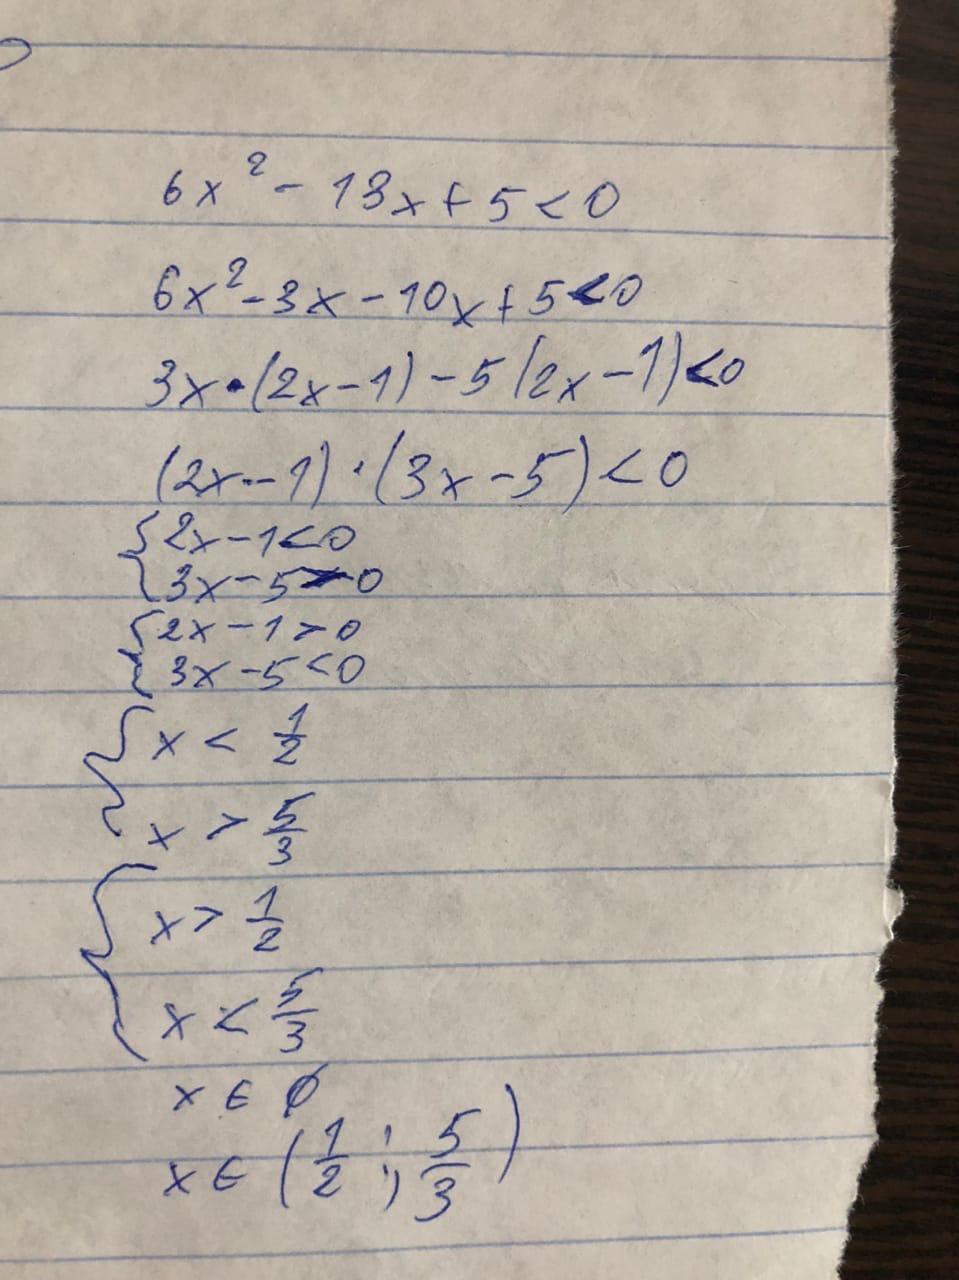 6x² - 13x + 5 < 0
6x² - 3x - 10x + 5 < 0
3x · (2x - 1) - 5(2x - 1) < 0
(2x - 1) · (3x - 5) < 0
{ 2x - 1 < 0
3x - 5 > 0
{ 2x - 1 > 0
3x - 5 < 0
{ x < 1/2
x > 5/3
{ x > 1/2
x < 5/3
x ∈ ∅
x ∈ (1/2 ; 5/3)